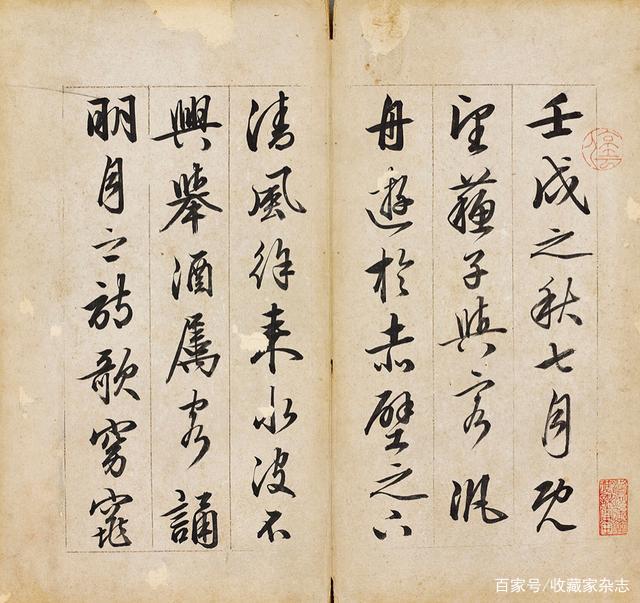 壬戌之秋七月既
望蘇子與客汎
舟遊於赤壁之下
清風徐來水波不
興舉酒屬客誦
明月之詩歌窈窕
百家号/收藏家杂志